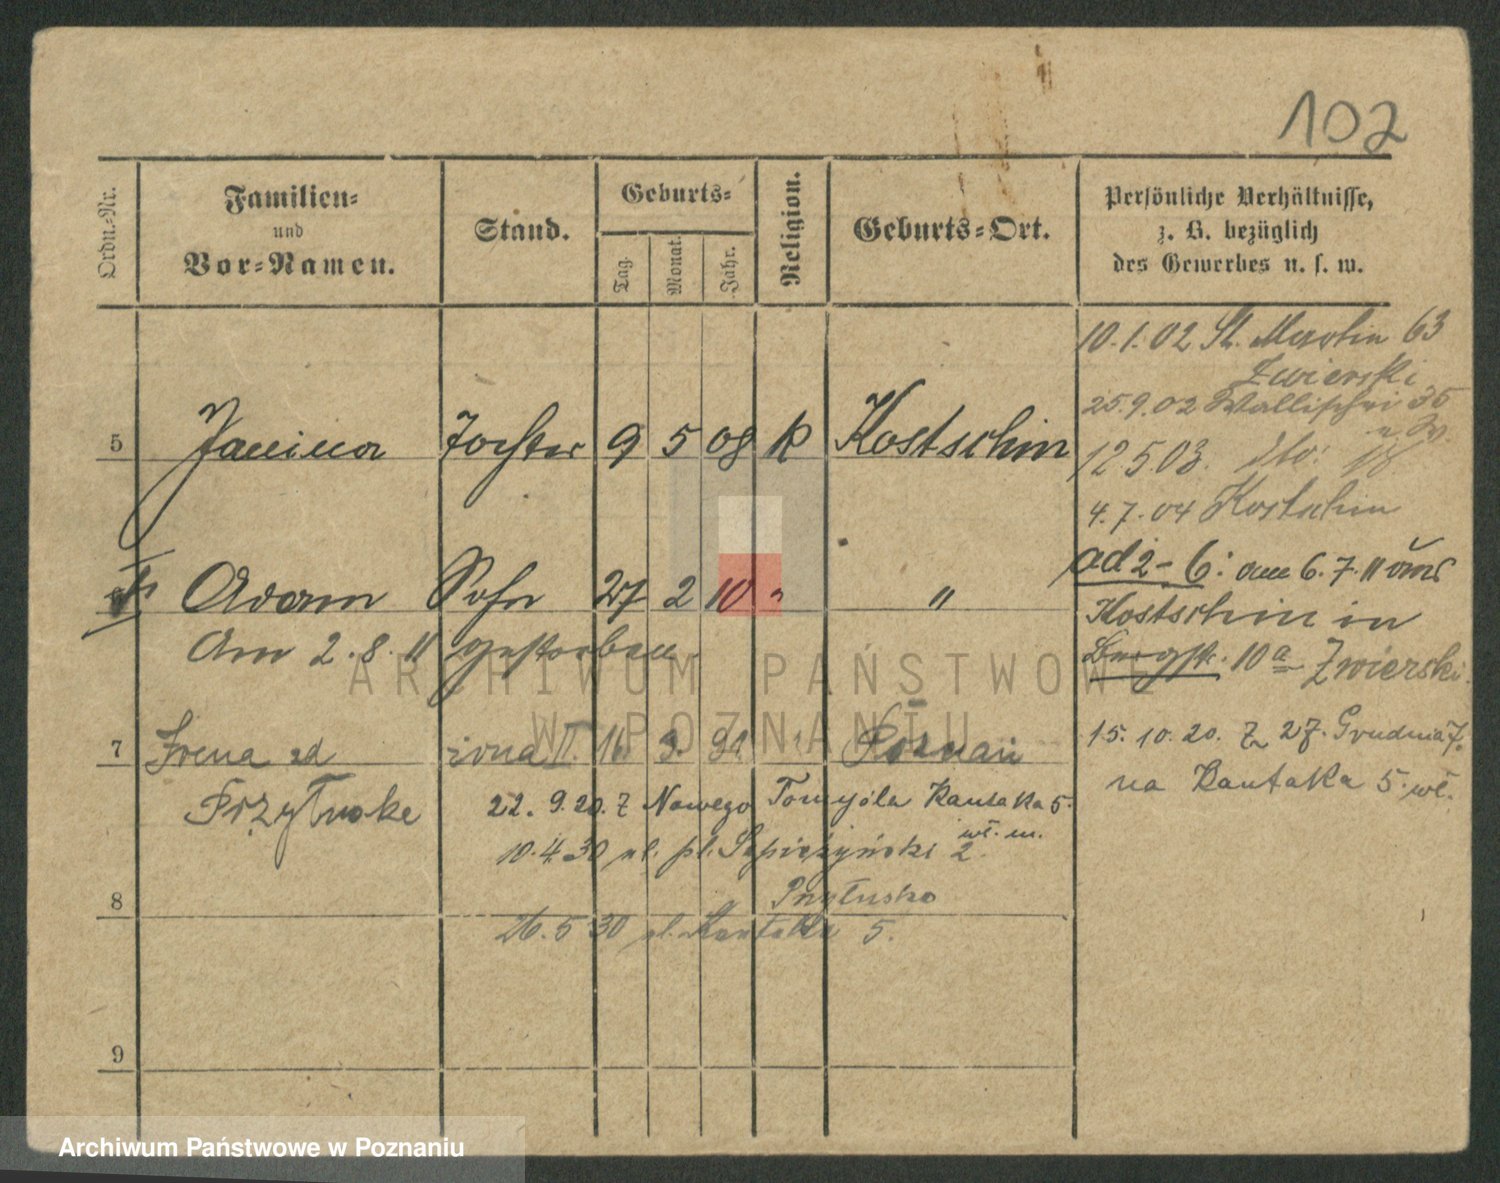 102
Ordn.-Nr.
Familien-
und
Vor-Namen.
Stand.
Geburts-
Tag.
Monat.
Jahr.
Religion.
Geburts-Ort.
Persönliche Verhältnisse,
z. B. bezüglich
des Gewerbes u. s. w.
10.1.02 St. Martin 63
Zwierski
25.9.02 Wallischei 36
5 Janina Tochter 9 5 08 k Kostschin
12 5.03. dto. 18
4.7.04 Kostschin
ad 2-6: am 6.7.11 aus
Adam Sohn 27 2 10 " "
Kostschin in
Am 2.8.11 gestorben.
Bergstr. 10a Zwierski
7 Irena żona II. 16. 9. 91 Poznań
15.10.20. Z 27. Grudnia 7.
na Kantaka 5. wł.
Przyłuska
22. 9. 20. Z Nowego Tomyśla Kantaka 5.
wł. m.
10.4.30 ul. pl. Sapieżyński 2.
8 Przyłuska
26.5 30 ul. Kantaka 5.
9
ARCHIWUM PAŃSTWOWE
W POZNANIU
Archiwum Państwowe w Poznaniu